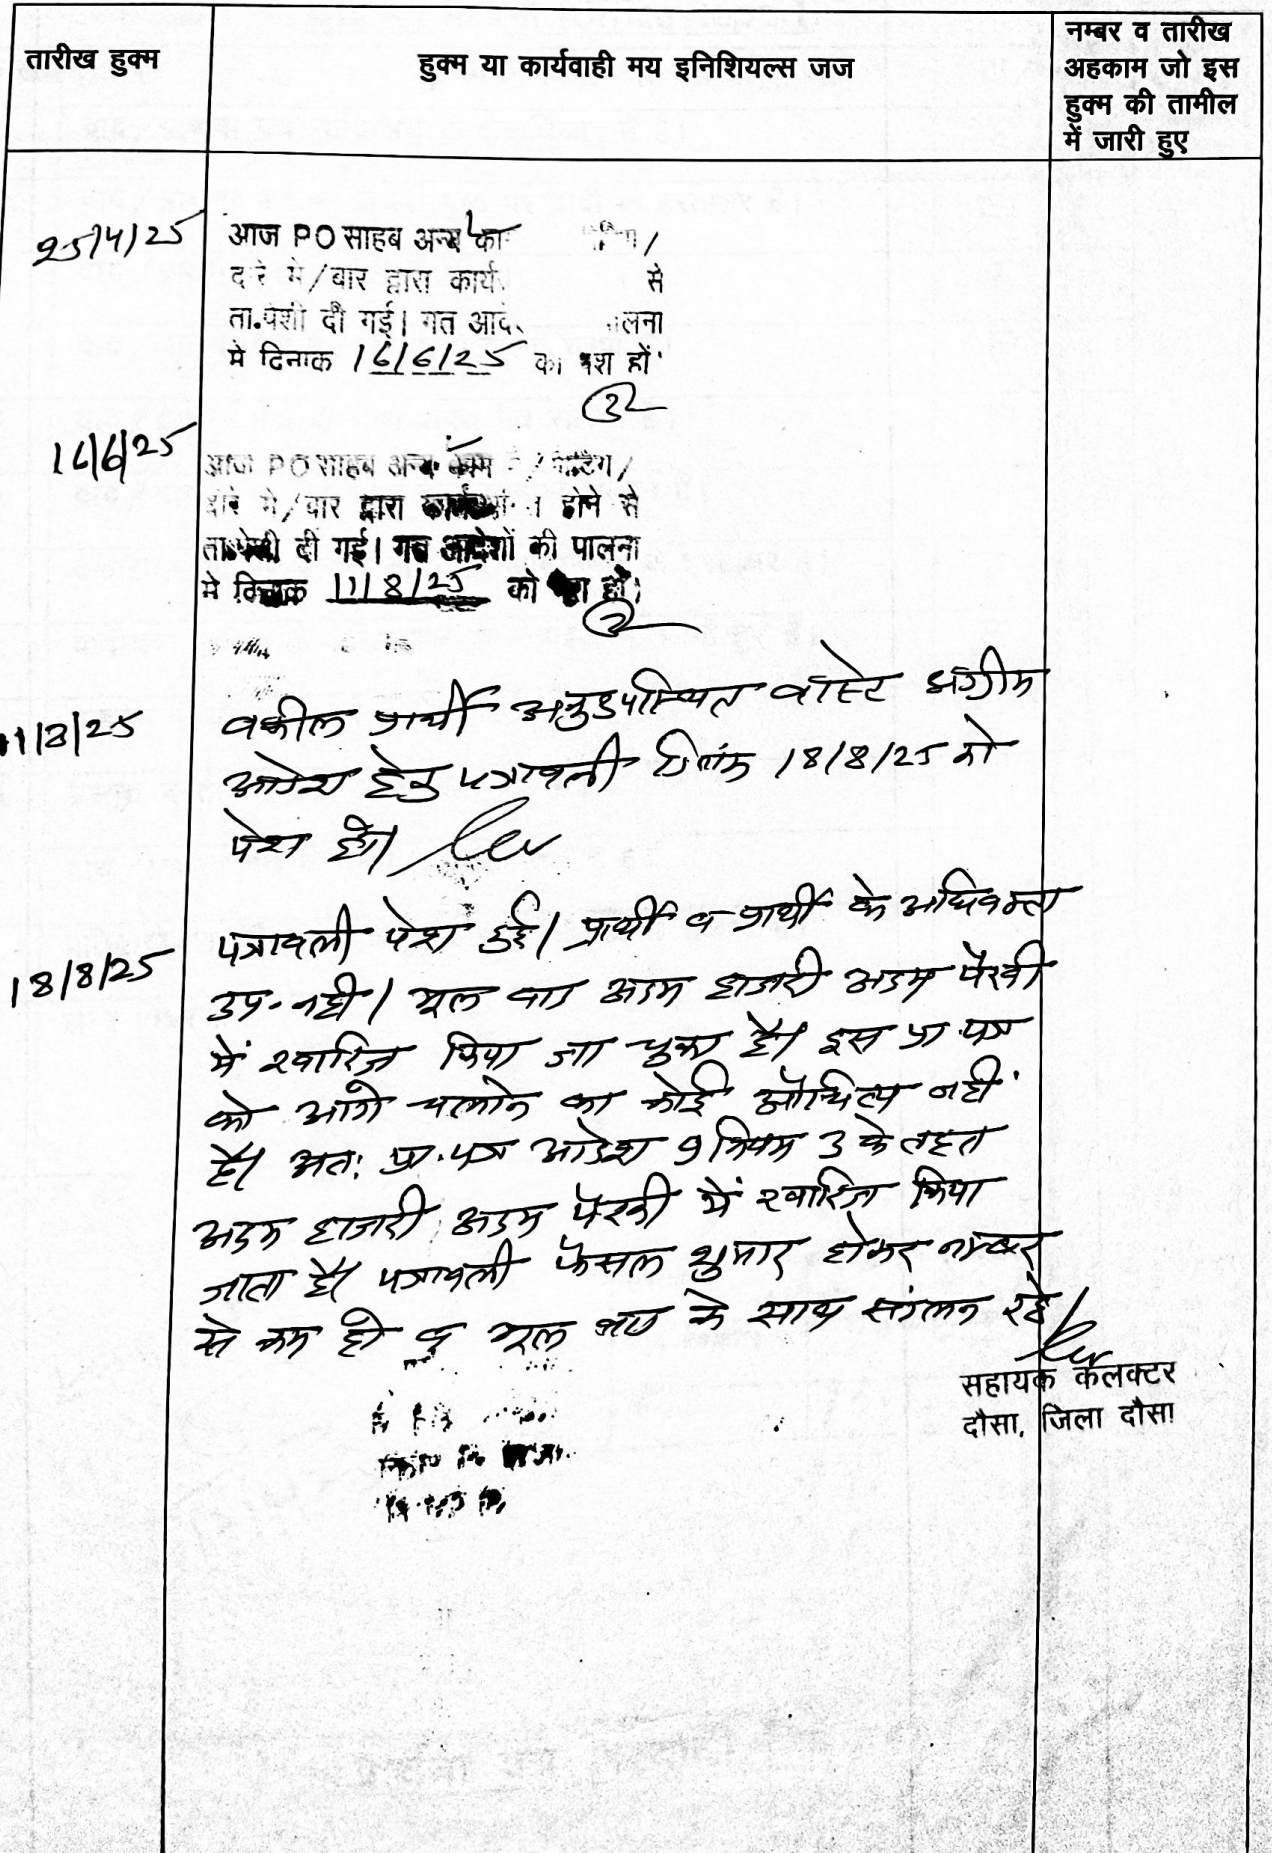 तारीख हुक्म
हुक्म या कार्यवाही मय इनिशियल्स जज
नम्बर व तारीख
अहकाम जो इस
हुक्म की तामील
में जारी हुए
25/4/25
आज PO साहब अन्य
द्वारा
से
ता.पेशी दी गई। गत
मे दिनांक 16/6/25 को पेश हों
16/6/25
आज PO साहब अन्य काम मे/मिटिंग/
दौरे मे/बार द्वारा होने से
ता.पेशी दी गई। गत आदेशों की पालना
मे दिनांक 11/8/25 को पेश हों।
11/8/25
वकील प्रार्थी अनुउपस्थित वास्ते अग्रीम
आदेश हेतु पत्रावली दिनांक 18/8/25 को
पेश हो।
18/8/25
पत्रावली पेश हुई। प्रार्थी व प्रार्थी के अधिवक्ता
उप. नही। मूल वाद अदम हाजरी अदम पैरवी
में खारिज किया जा चुका है। इस प्रा.पत्र
को आगे चलाने का कोई औचित्य नहीं
है। अत: प्रा.पत्र आदेश 9 नियम 3 के तहत
अदम हाजरी अदम पैरवी में खारिज किया
जाता है। पत्रावली फैसल शुमार होकर नम्बर
से कम हो व मूल वाद के साथ संलग्न रहे।
सहायक कलक्टर
दौसा, जिला दौसा